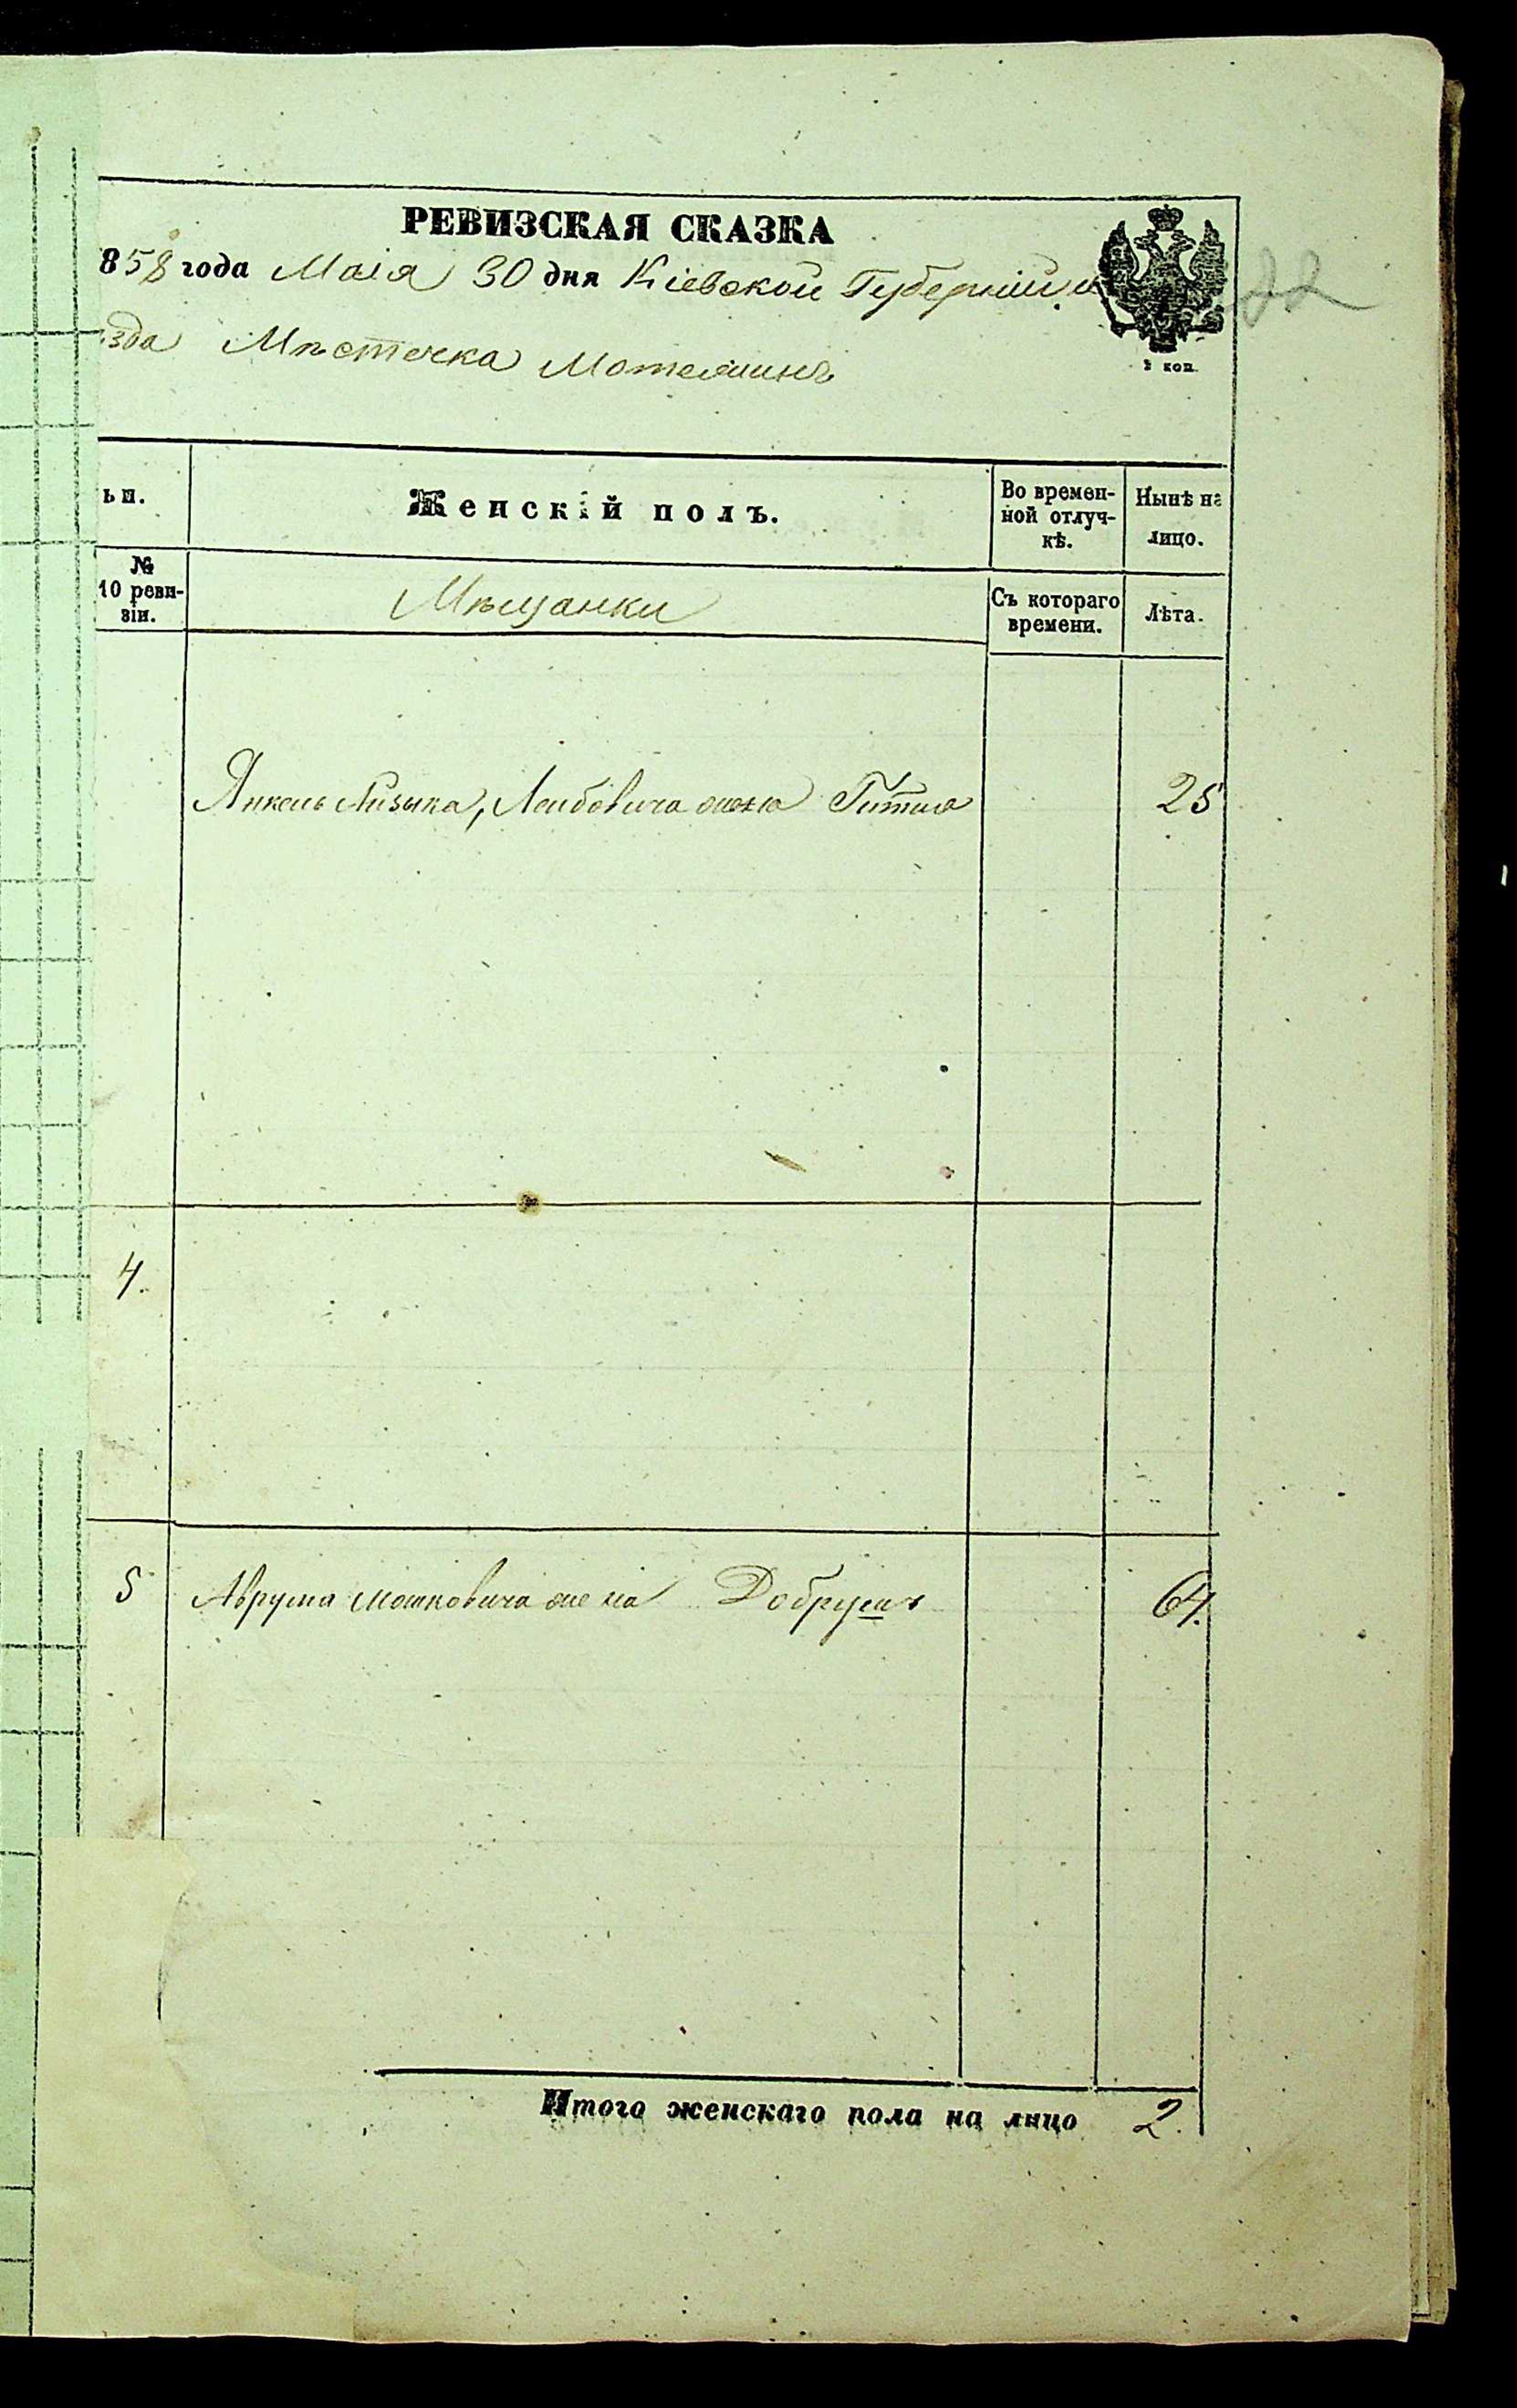 РЕВИЗСКАЯ СКАЗКА
858 года Маія 30 дня Кіевской Губерніи и
22
зда Мѣстечка Мотелшинъ
2 коп.
ьи.
Женскій полъ.
Во времен-
ной отлуч-
кѣ.
Нынѣ на
лицо.
№
10 реви-
зіи.
Мѣщанки
Съ котораго
времени.
Лѣта.
Янкель Айзыка, Лейбовича жена Гитля 25
4.
5 Аврума Мошковича жена Добрушъ 64.
Итого женскаго пола на лицо 2.